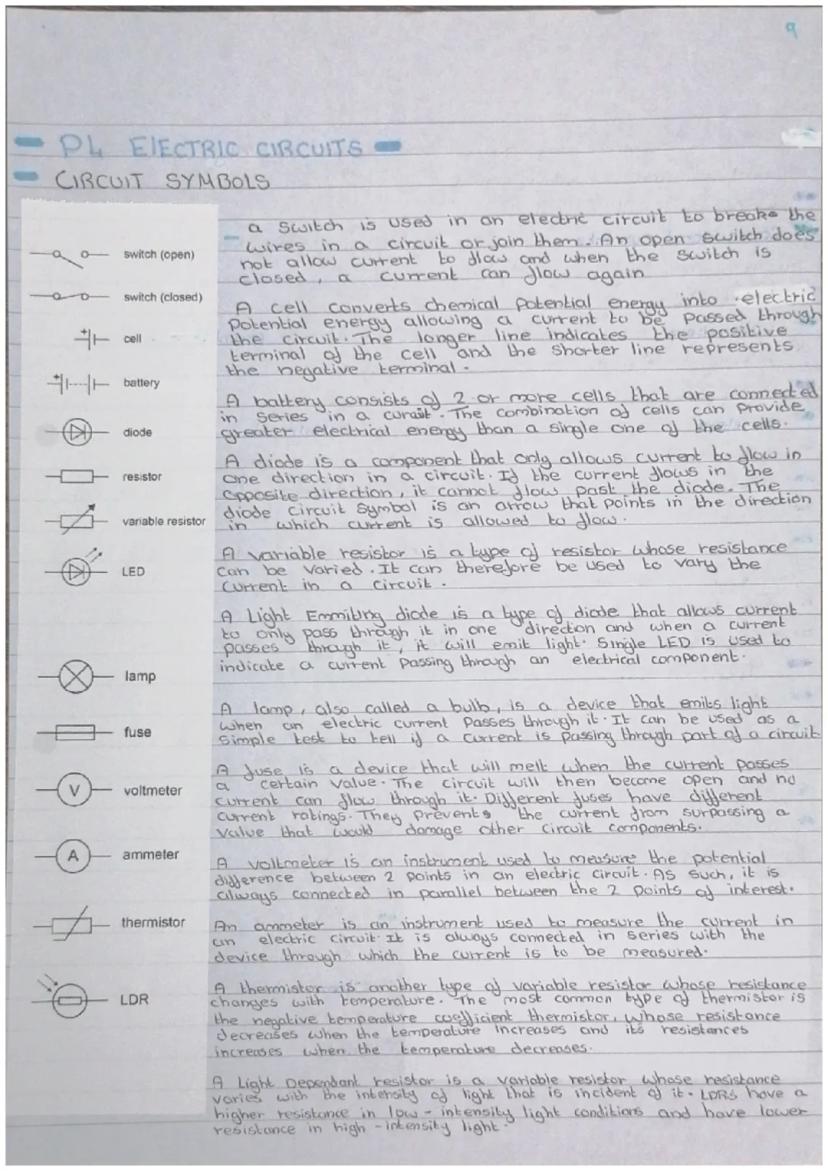 9
P4 ELECTRIC CIRCUITS
CIRCUIT SYMBOLS
a switch is used in an electric circuit to breake the
wires in a circuit or join them. An open switch does
not allow current to flow and when the switch is
closed, a current can flow again
switch (open)
switch (closed)
A cell converts chemical potential energy into electric
potential energy allowing a current to be passed through
the circuit. The longer line indicates the positive
terminal of the cell and the shorter line represents
the negative terminal.
cell
battery
A battery consists of 2 or more cells that are connected
in series in a curait. The combination of cells can provide
greater electrical energy than a single one of the cells.
diode
A diode is a component that only allows current to flow in
one direction in a circuit. If the current flows in the
opposite direction, it cannot flow past the diode. The
diode circuit symbol is an arrow that points in the direction
in which current is allowed to flow.
resistor
variable resistor
A variable resistor is a type of resistor whose resistance
can be varied. It can therefore be used to vary the
current in a circuit.
LED
A Light Emmiting diode is a type of diode that allows current
to only pass through it in one direction and when a current
passes through it, it will emit light. Single LED is used to
indicate a current passing through an electrical component.
lamp
A lamp, also called a bulb, is a device that emits light
when an electric current passes through it. It can be used as a
simple test to tell if a current is passing through part of a circuit
fuse
A fuse is a device that will melt when the current passes
a certain value. The circuit will then become open and no
current can flow through it. Different fuses have different
current ratings. They prevents the current from surpassing a
value that would damage other circuit components.
voltmeter
A voltmeter is an instrument used to measure the potential
difference between 2 points in an electric circuit. As such, it is
always connected in parallel between the 2 points of interest.
V
ammeter
A
An ammeter is an instrument used to measure the current in
an electric circuit. It is always connected in series with the
device through which the current is to be measured.
thermistor
A thermistor is another type of variable resistor whose resistance
changes with temperature. The most common type of thermistor is
the negative temperature coefficient thermistor, whose resistance
decreases when the temperature increases and its resistances
increases when the temperature decreases.
LDR
A Light Dependant resistor is a variable resistor whose resistance
varies with the intensity of light that is incident of it. LDRs have a
higher resistance in low-intensity light conditions and have lower
resistance in high-intensity light.